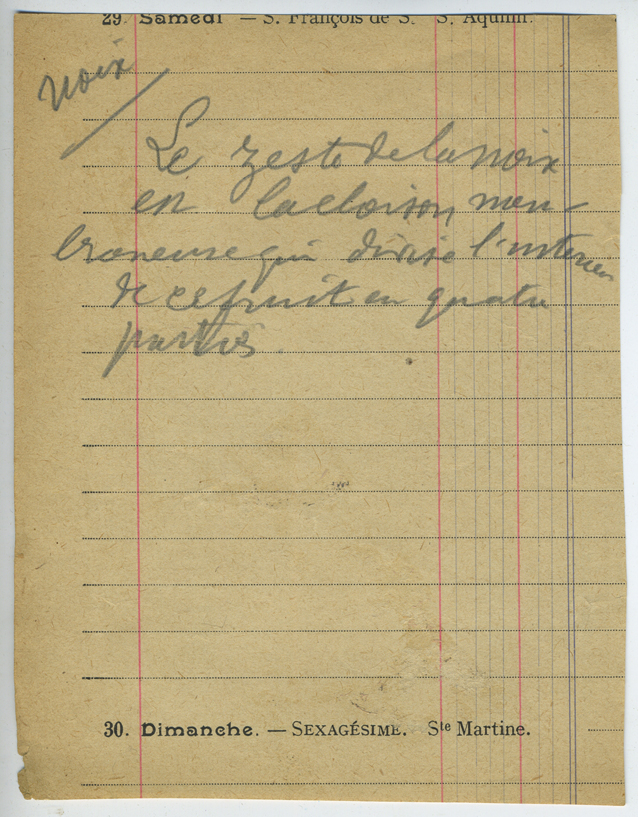 29. Samedi — S. François de S. S. Aquilin.
noix
Le zeste de la noix
est la cloison mem-
braneuse qui divise l'interieur
de ce fruit en quatre
parties.
30. Dimanche. — SEXAGÉSIME. Ste Martine.